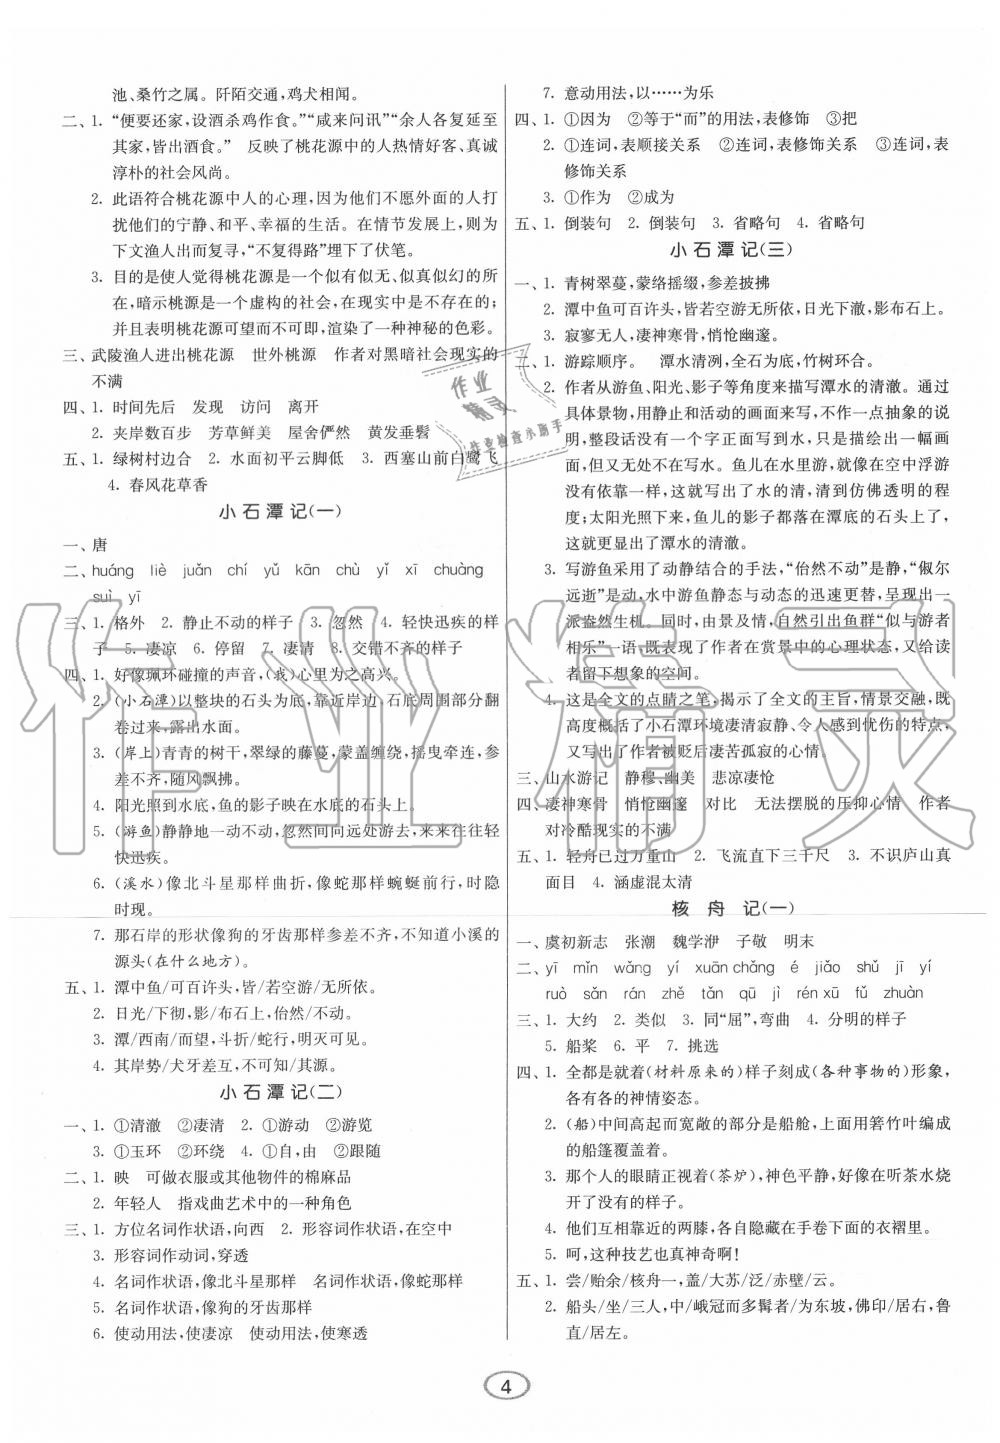 池、桑竹之属。阡陌交通，鸡犬相闻。
二、1. “便要还家，设酒杀鸡作食。”“咸来问讯”“余人各复延至
其家，皆出酒食。”　反映了桃花源中的人热情好客、真诚
淳朴的社会风尚。
2. 此语符合桃花源中人的心理，因为他们不愿外面的人打
扰他们的宁静、和平、幸福的生活。在情节发展上，又为
下文渔人出而复寻，“不复得路”埋下了伏笔。
3. 目的是使人觉得桃花源是一个似有似无、似真似幻的所
在，暗示桃源是一个虚构的社会，在现实中是不存在的；
并且表明桃花源可望而不可即，渲染了一种神秘的色彩。
三、武陵渔人进出桃花源　世外桃源　作者对黑暗社会现实的
不满
四、1. 时间先后　发现　访问　离开
2. 夹岸数百步　芳草鲜美　屋舍俨然　黄发垂髫
五、1. 绿树村边合　2. 水面初平云脚低　3. 西塞山前白鹭飞
4. 春风花草香
小石潭记（一）
一、唐
二、huáng　liè　juǎn　chí　yǔ　kān　chù　yǐ　xī　chuàng
suì　yī
三、1. 格外　2. 静止不动的样子　3. 忽然　4. 轻快迅疾的样
子　5. 凄凉　6. 停留　7. 凄清　8. 交错不齐的样子
四、1. 好像珮环碰撞的声音，（我）心里为之高兴。
2.（小石潭）以整块的石头为底，靠近岸边，石底周围部分翻
卷过来，露出水面。
3.（岸上）青青的树干，翠绿的藤蔓，蒙盖缠绕，摇曳牵连，参
差不齐，随风飘拂。
4. 阳光照到水底，鱼的影子映在水底的石头上。
5.（游鱼）静静地一动不动，忽然间向远处游去，来来往往轻
快迅疾。
6.（溪水）像北斗星那样曲折，像蛇那样蜿蜒前行，时隐
时现。
7. 那石岸的形状像狗的牙齿那样参差不齐，不知道小溪的
源头（在什么地方）。
五、1. 潭中鱼/可百许头，皆/若空游/无所依。
2. 日光/下彻，影/布石上，佁然/不动。
3. 潭/西南/而望，斗折/蛇行，明灭可见。
4. 其岸势/犬牙差互，不可知/其源。
小石潭记（二）
一、1. ①清澈　②凄清　2. ①游动　②游览
3. ①玉环　②环绕　4. ①自，由　②跟随
二、1. 映　可做衣服或其他物件的棉麻品
2. 年轻人　指戏曲艺术中的一种角色
三、1. 方位名词作状语，向西　2. 形容词作状语，在空中
3. 形容词作动词，穿透
4. 名词作状语，像北斗星那样　名词作状语，像蛇那样
5. 名词作状语，像狗的牙齿那样
6. 使动用法，使凄凉　使动用法，使寒透
7. 意动用法，以……为乐
四、1. ①因为　②等于“而”的用法，表修饰　③把
2. ①连词，表顺接关系　②连词，表修饰关系　③连词，表
修饰关系
3. ①作为　②成为
五、1. 倒装句　2. 倒装句　3. 省略句　4. 省略句
小石潭记（三）
一、1. 青树翠蔓，蒙络摇缀，参差披拂
2. 潭中鱼可百许头，皆若空游无所依，日光下澈，影布石上。
3. 寂寥无人，凄神寒骨，悄怆幽邃。
二、1. 游踪顺序。　潭水清冽，全石为底，竹树环合。
2. 作者从游鱼、阳光、影子等角度来描写潭水的清澈。通过
具体景物，用静止和活动的画面来写，不作一点抽象的说
明，整段话没有一个字正面写到水，只是描绘出一幅画
面，但又无处不在写水。鱼儿在水里游，就像在空中浮游
没有依靠一样，这就写出了水的清，清到仿佛透明的程
度；太阳光照下来，鱼儿的影子都落在潭底的石头上了，
这就更显示出了潭水的清澈。
3. 写游鱼采用了动静结合的手法，“佁然不动”是静，“俶尔
远逝”是动，水中游鱼静态与动态的迅速更替，呈现出一
派盎然生机。同时，由景及情，自然引出鱼群“似与游者
相乐”一语，既表现了作者在赏景中的心理状态，又给读
者留下想象的空间。
4. 这是全文的点睛之笔，揭示了全文的主旨，情景交融，既
高度概括了小石潭环境凄清寂静、令人感到忧伤的特点，
又写出了作者被贬后凄苦孤寂的心情。
三、山水游记　静穆、幽美　悲凉凄怆
四、凄神寒骨　悄怆幽邃　对比　无法摆脱的压抑心情　作者
对冷酷现实的不满
五、1. 轻舟已过万重山　2. 飞流直下三千尺　3. 不识庐山真
面目　4. 涵虚混太清
核舟记（一）
一、虞初新志　张潮　魏学洢　子敬　明末
二、yī　mǐn　wǎng　yí　xuān chǎng　é　jiǎo　shǔ　jī　yí
ruò　sǎn　rán　zhě　tǎn　qū　jì　rén xū　fǔ　zhuàn
三、1. 大约　2. 类似　3. 同“屈”，弯曲　4. 分明的样子
5. 船桨　6. 平　7. 挑选
四、1. 全都是就着（材料原来的）样子刻成（各种事物的）形象，
各有各的神情姿态。
2.（船）中间高起而宽敞的部分是船舱，上面用箬竹叶编成
的船篷覆盖着。
3. 那个人的眼睛正视着（茶炉），神色平静，好像在听茶水烧
开了没有的样子。
4. 他们互相靠近的两膝，各自隐藏在手卷下面的衣褶里。
5. 呵，这种技艺也真神奇啊！
五、1. 尝/贻余/核舟一，盖/大苏/泛/赤壁/云。
2. 船头/坐/三人，中/峨冠而多髯者/为东坡，佛印/居右，鲁
直/居左。
4
作业
精灵
作业检查小助手
作业精灵